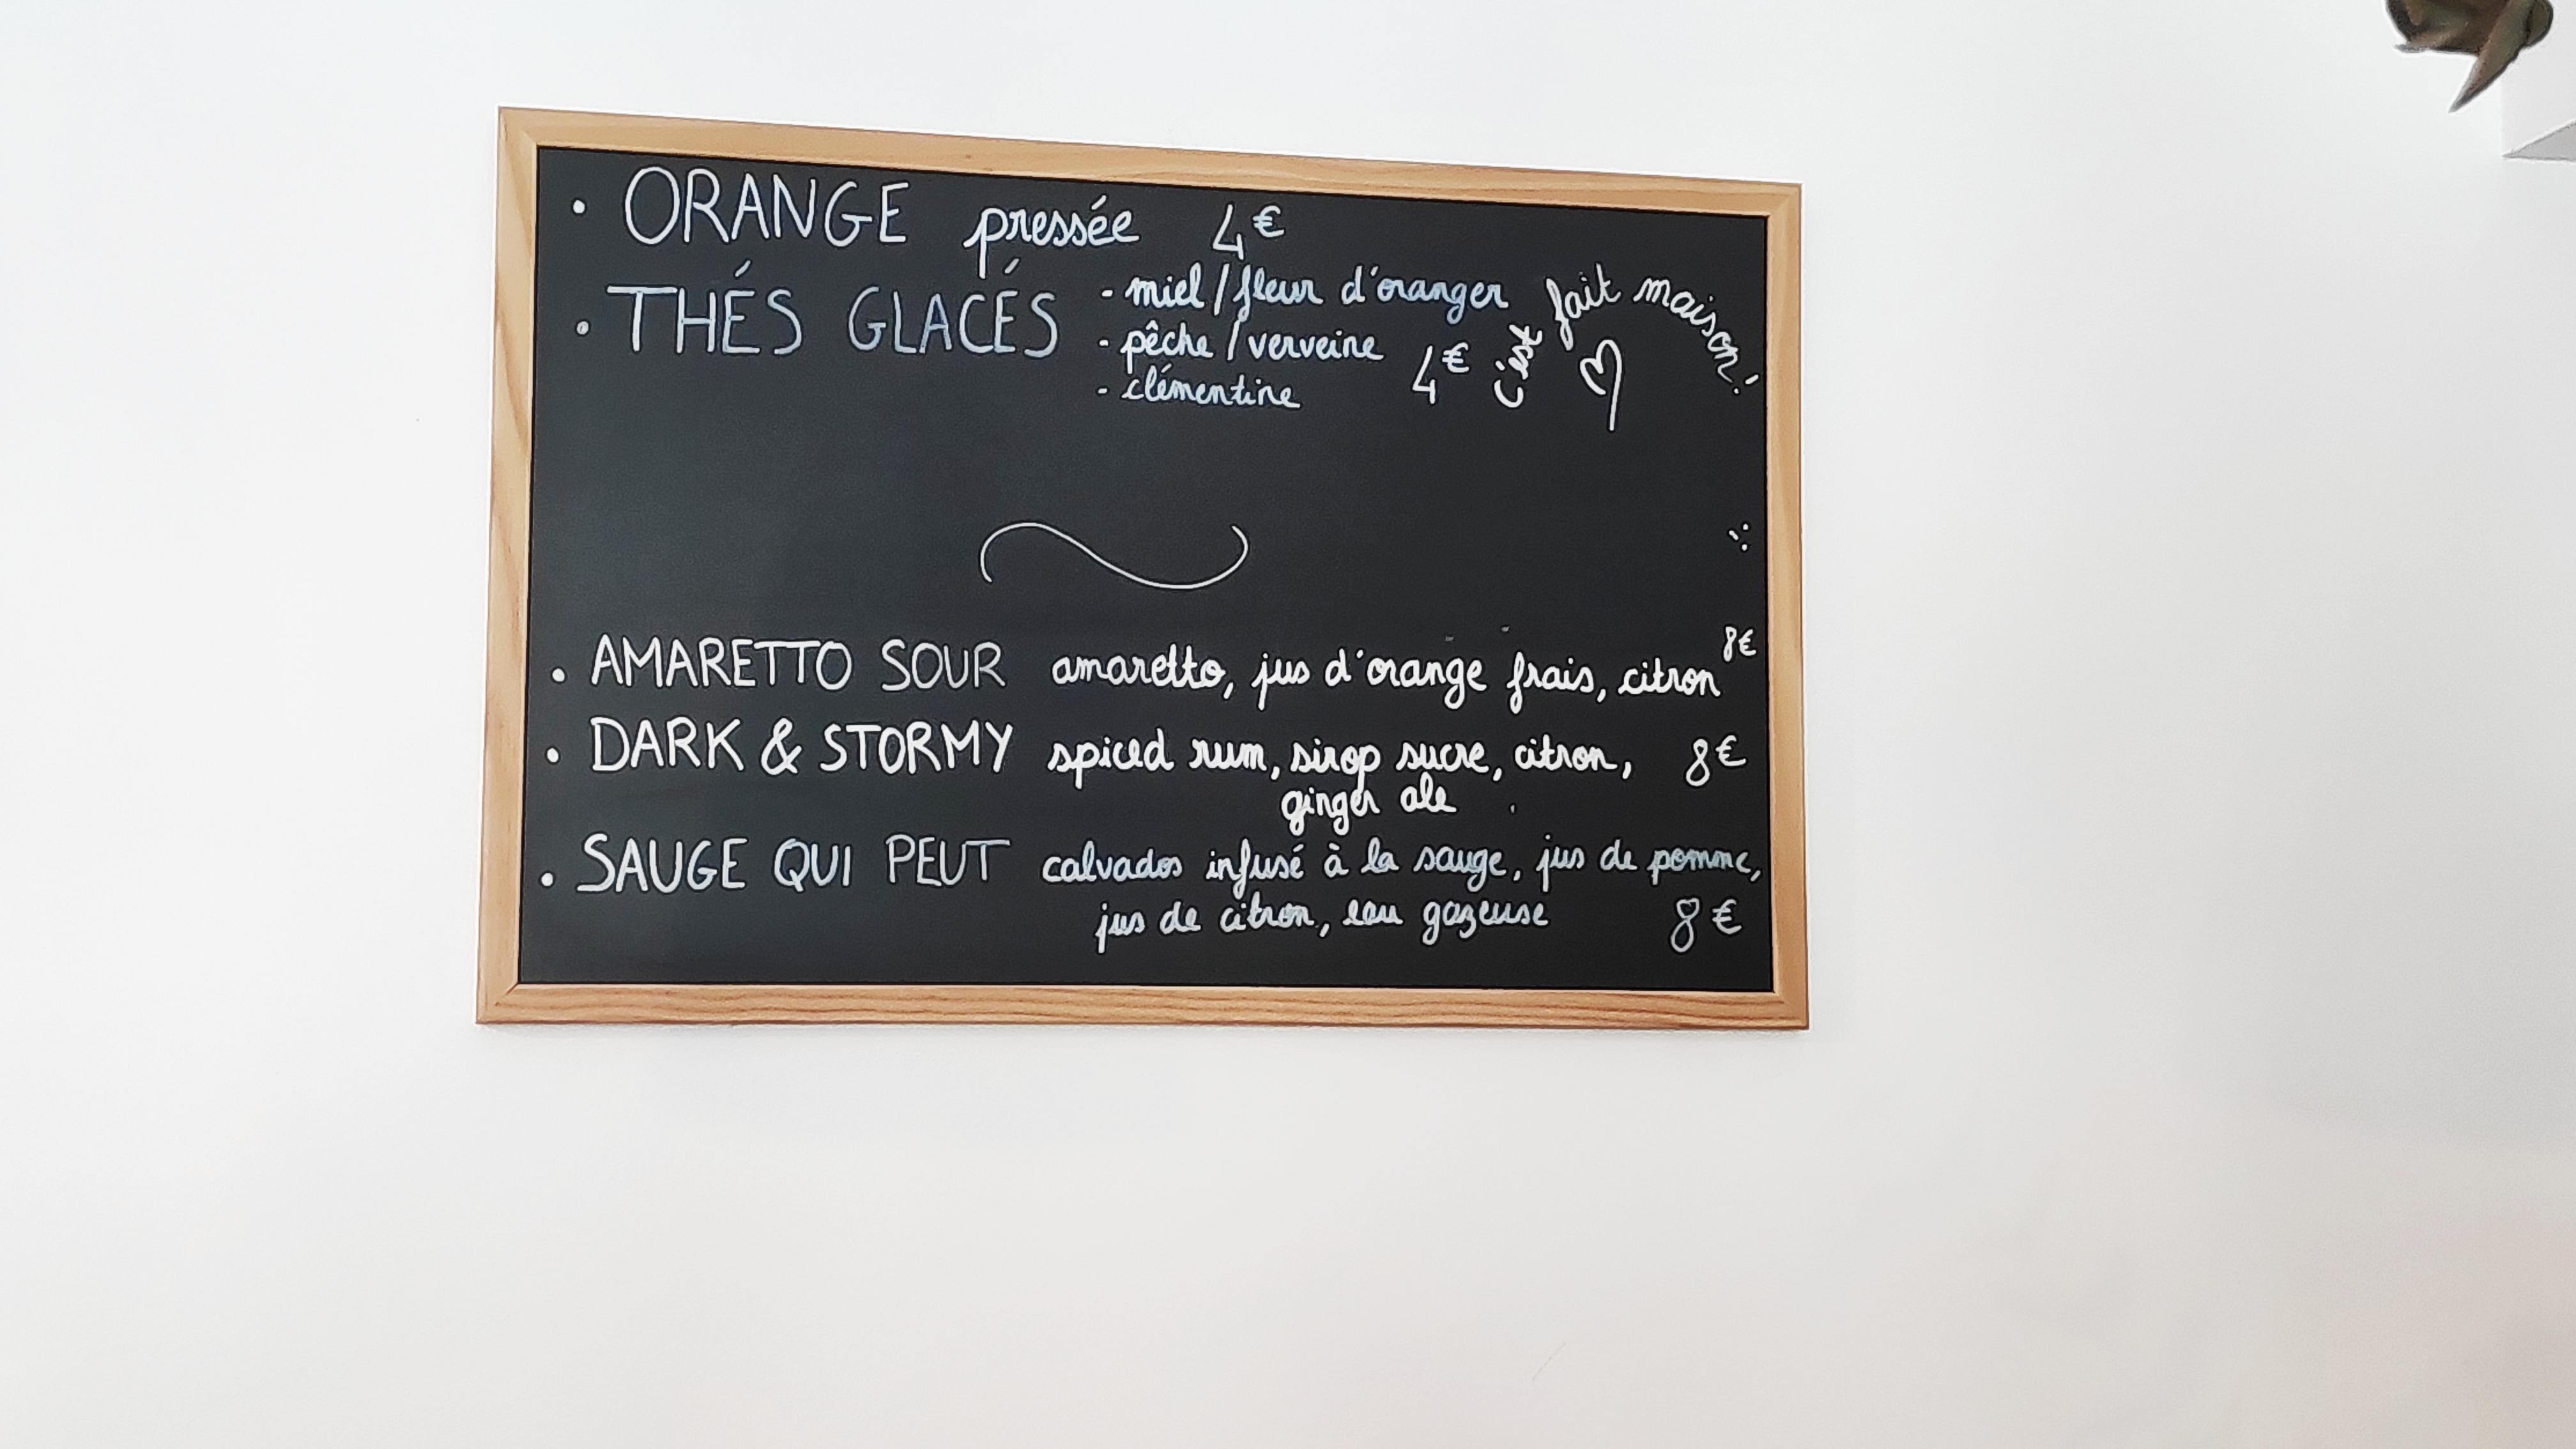 • ORANGE pressée 4€
• THÉS GLACÉS - miel / fleur d'oranger
- pêche / verveine 4€
- clémentine
c'est fait maison!
• AMARETTO SOUR amaretto, jus d'orange frais, citron 8€
• DARK & STORMY spiced rum, sirop sucre, citron, 8€
ginger ale
• SAUGE QUI PEUT calvados infusé à la sauge, jus de pomme,
jus de citron, eau gazeuse 8€